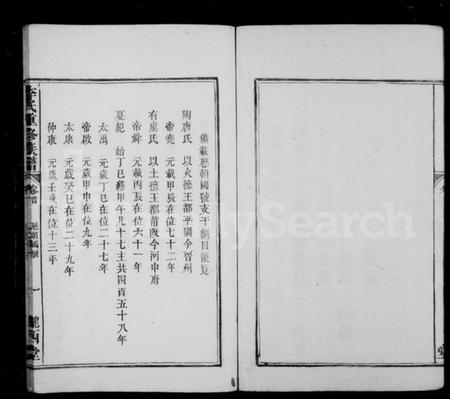 備載歷朝國號支干綱目後覧
陶唐氏 以火德王都平陽今晉州
帝堯 元載甲辰在位七十二年
有虞氏 以土德王都蒲阪今河中府
帝舜 元載丙辰在位六十一年
夏紀 始丁巳終甲午凡十七主共四百五十八年
太禹 元歲丁巳在位二十七年
帝啟 元歲甲申在位九年
太康 元歲癸巳在位二十九年
仲康 元歲壬戌在位十三年
李氏重修族譜
卷首
一
隴西堂
堂